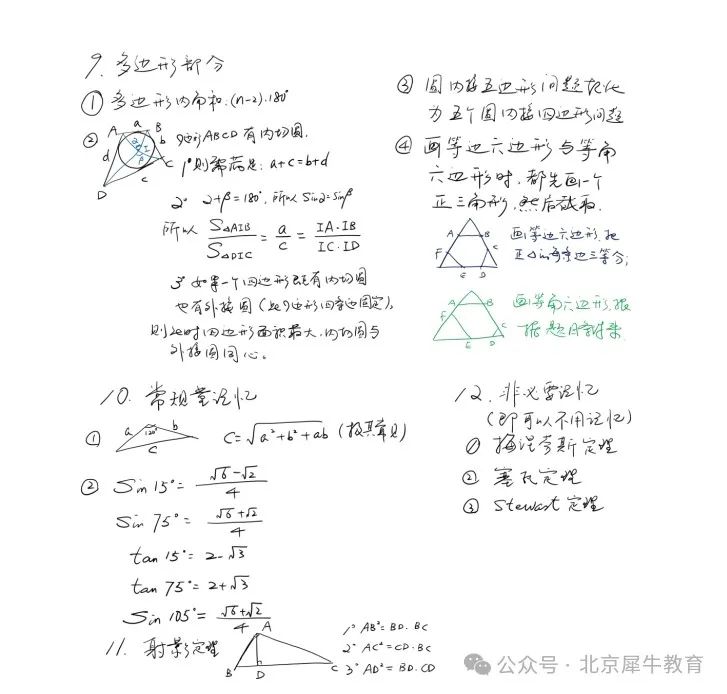 9. 多边形部分
① 多边形内角和: (n-2)·180°
② 四边形ABCD 有内切圆.
A a B
b
d
C
c
D
1° 则需满足: a+c=b+d
2° α+β=180°, 所以 Sinα=Sinβ
所以 S△AIB/S△DIC = a/c = IA·IB/IC·ID
3° 如果一个四边形既有内切圆
也有外接圆 (此四边形四条边固定),
则此时四边形面积最大, 内切圆与
外接圆同心。
③ 圆内接五边形问题转化
为五个圆内接四边形问题
④ 画等边六边形与等角
六边形时, 都先画一个
正三角形, 然后截取.
A B
F C
E D
画等边六边形, 把
正△的每条边三等分;
A B
F C
E D
画等角六边形, 根
据题目条件来.
10. 常规量记忆
① a 120° b c
C=√a²+b²+ab (极其常见)
② Sin 15° = √6-√2/4
Sin 75° = √6+√2/4
tan 15° = 2-√3
tan 75° = 2+√3
Sin 105° = √6+√2/4
11. 射影定理
A
B D C
1° AB²=BD·BC
2° AC²=CD·BC
3° AD²=BD·CD
12. 非必要记忆
(即可以不用记忆)
① 梅涅劳斯定理
② 塞瓦定理
③ Stewart定理
公众号·北京犀牛教育